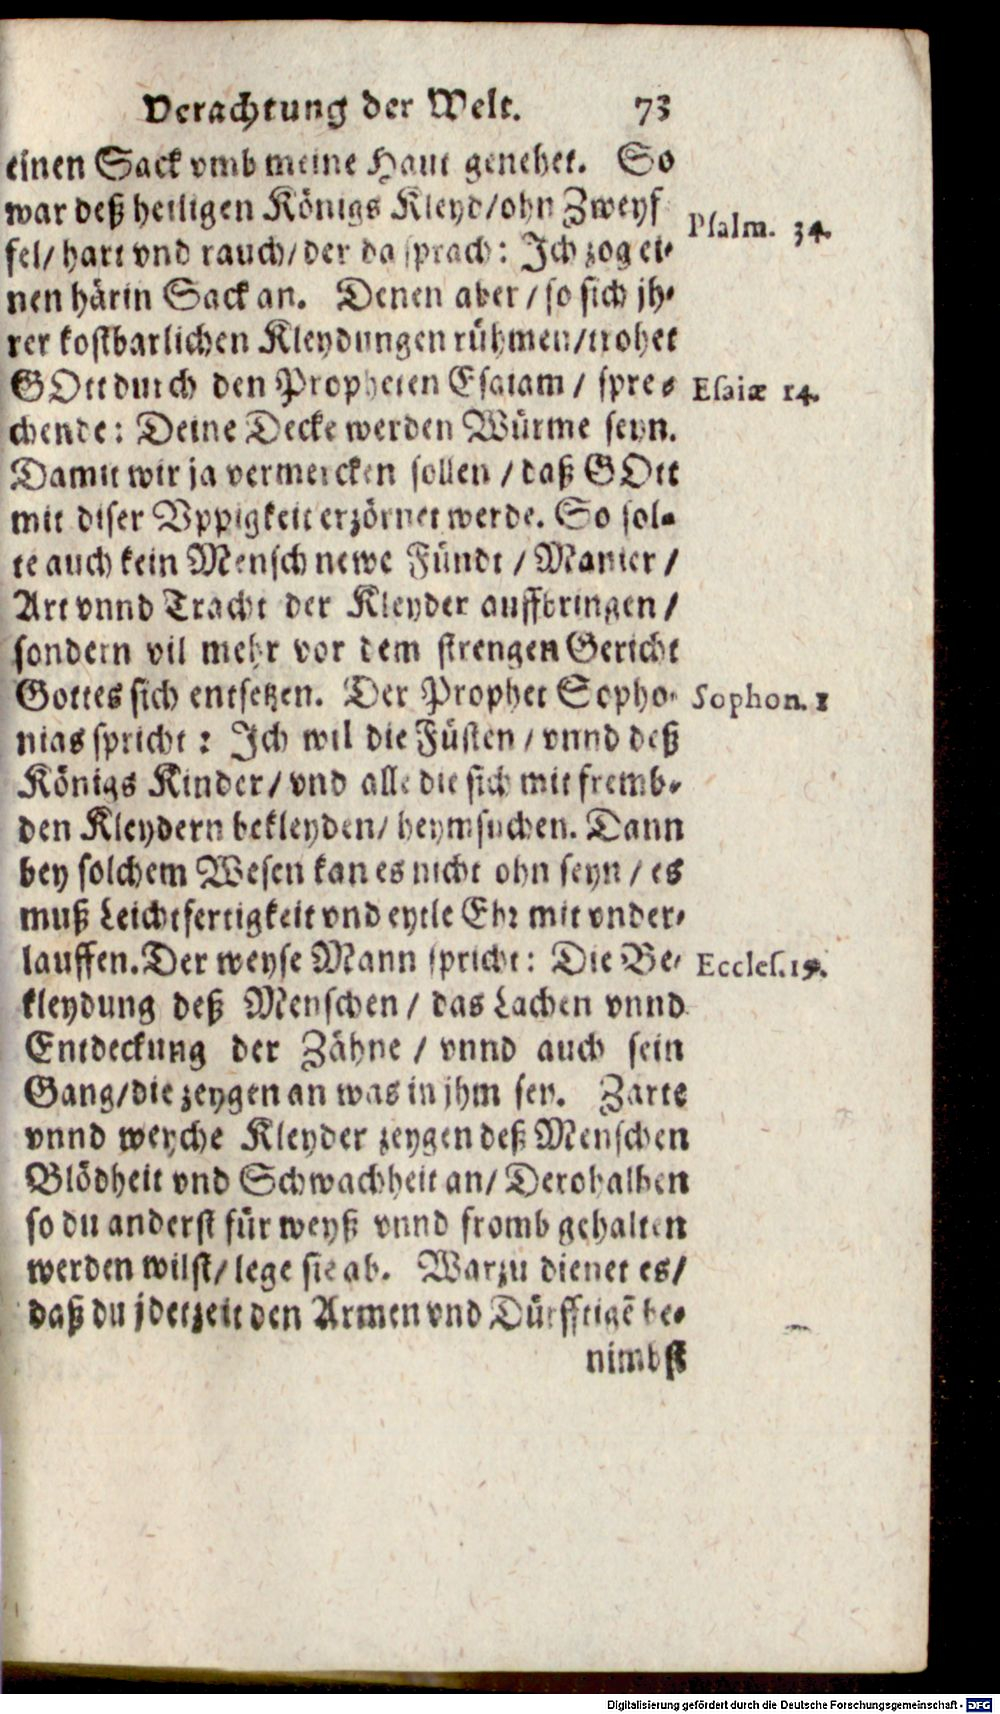 Verachtung der Welt. 73
einen Sack vmb meine Haut genehet. So
war deß heiligen Königs Kleyd/ohn Zweyf
fel/ hart vnd rauch/ der da sprach: Ich zog ei-
Psalm. 34.
nen härin Sack an. Denen aber / so sich jh-
rer kostbarlichen Kleydungen rühmen/trohet
GOtt durch den Propheten Esaiam / spre-
Esaiæ 14.
chende: Deine Decke werden Würme seyn.
Damit wir ja vermercken sollen / daß GOtt
mit diser Vppigkeit erzörnet werde. So sol-
te auch kein Mensch newe Fündt / Manier /
Art vnnd Tracht der Kleyder auffbringen /
sondern vil mehr vor dem strengen Gericht
Gottes sich entsetzen. Der Prophet Sopho-
Sophon. 1
nias spricht : Ich wil die Füsten / vnnd deß
Königs Kinder/ vnd alle die sich mit fremb-
den Kleydern bekleyden/ heymsuchen. Dann
bey solchem Wesen kan es nicht ohn seyn / es
muß Leichtfertigkeit vnd eytle Ehr mit vnder-
lauffen. Der weyse Mann spricht: Die Be-
Eccles. 19.
kleydung deß Menschen / das Lachen vnnd
Entdeckung der Zähne / vnnd auch sein
Gang/die zeygen an was in jhm sey. Zarte
vnnd weyche Kleyder zeygen deß Menschen
Blödheit vnd Schwachheit an/ Derohalben
so du anderst für weyß vnnd fromb gehalten
werden wilst/ lege sie ab. Warzu dienet es/
daß du jderzeit den Armen vnd Dürfftigē be-
nimbst
Digitalisierung gefördert durch die Deutsche Forschungsgemeinschaft - DFG